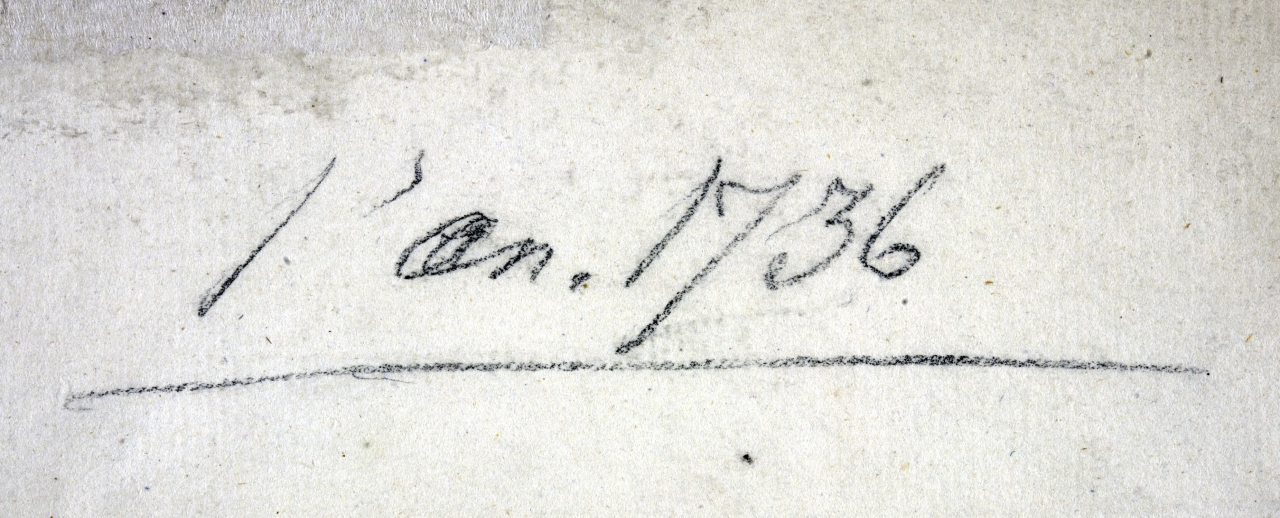 l'an. 1736